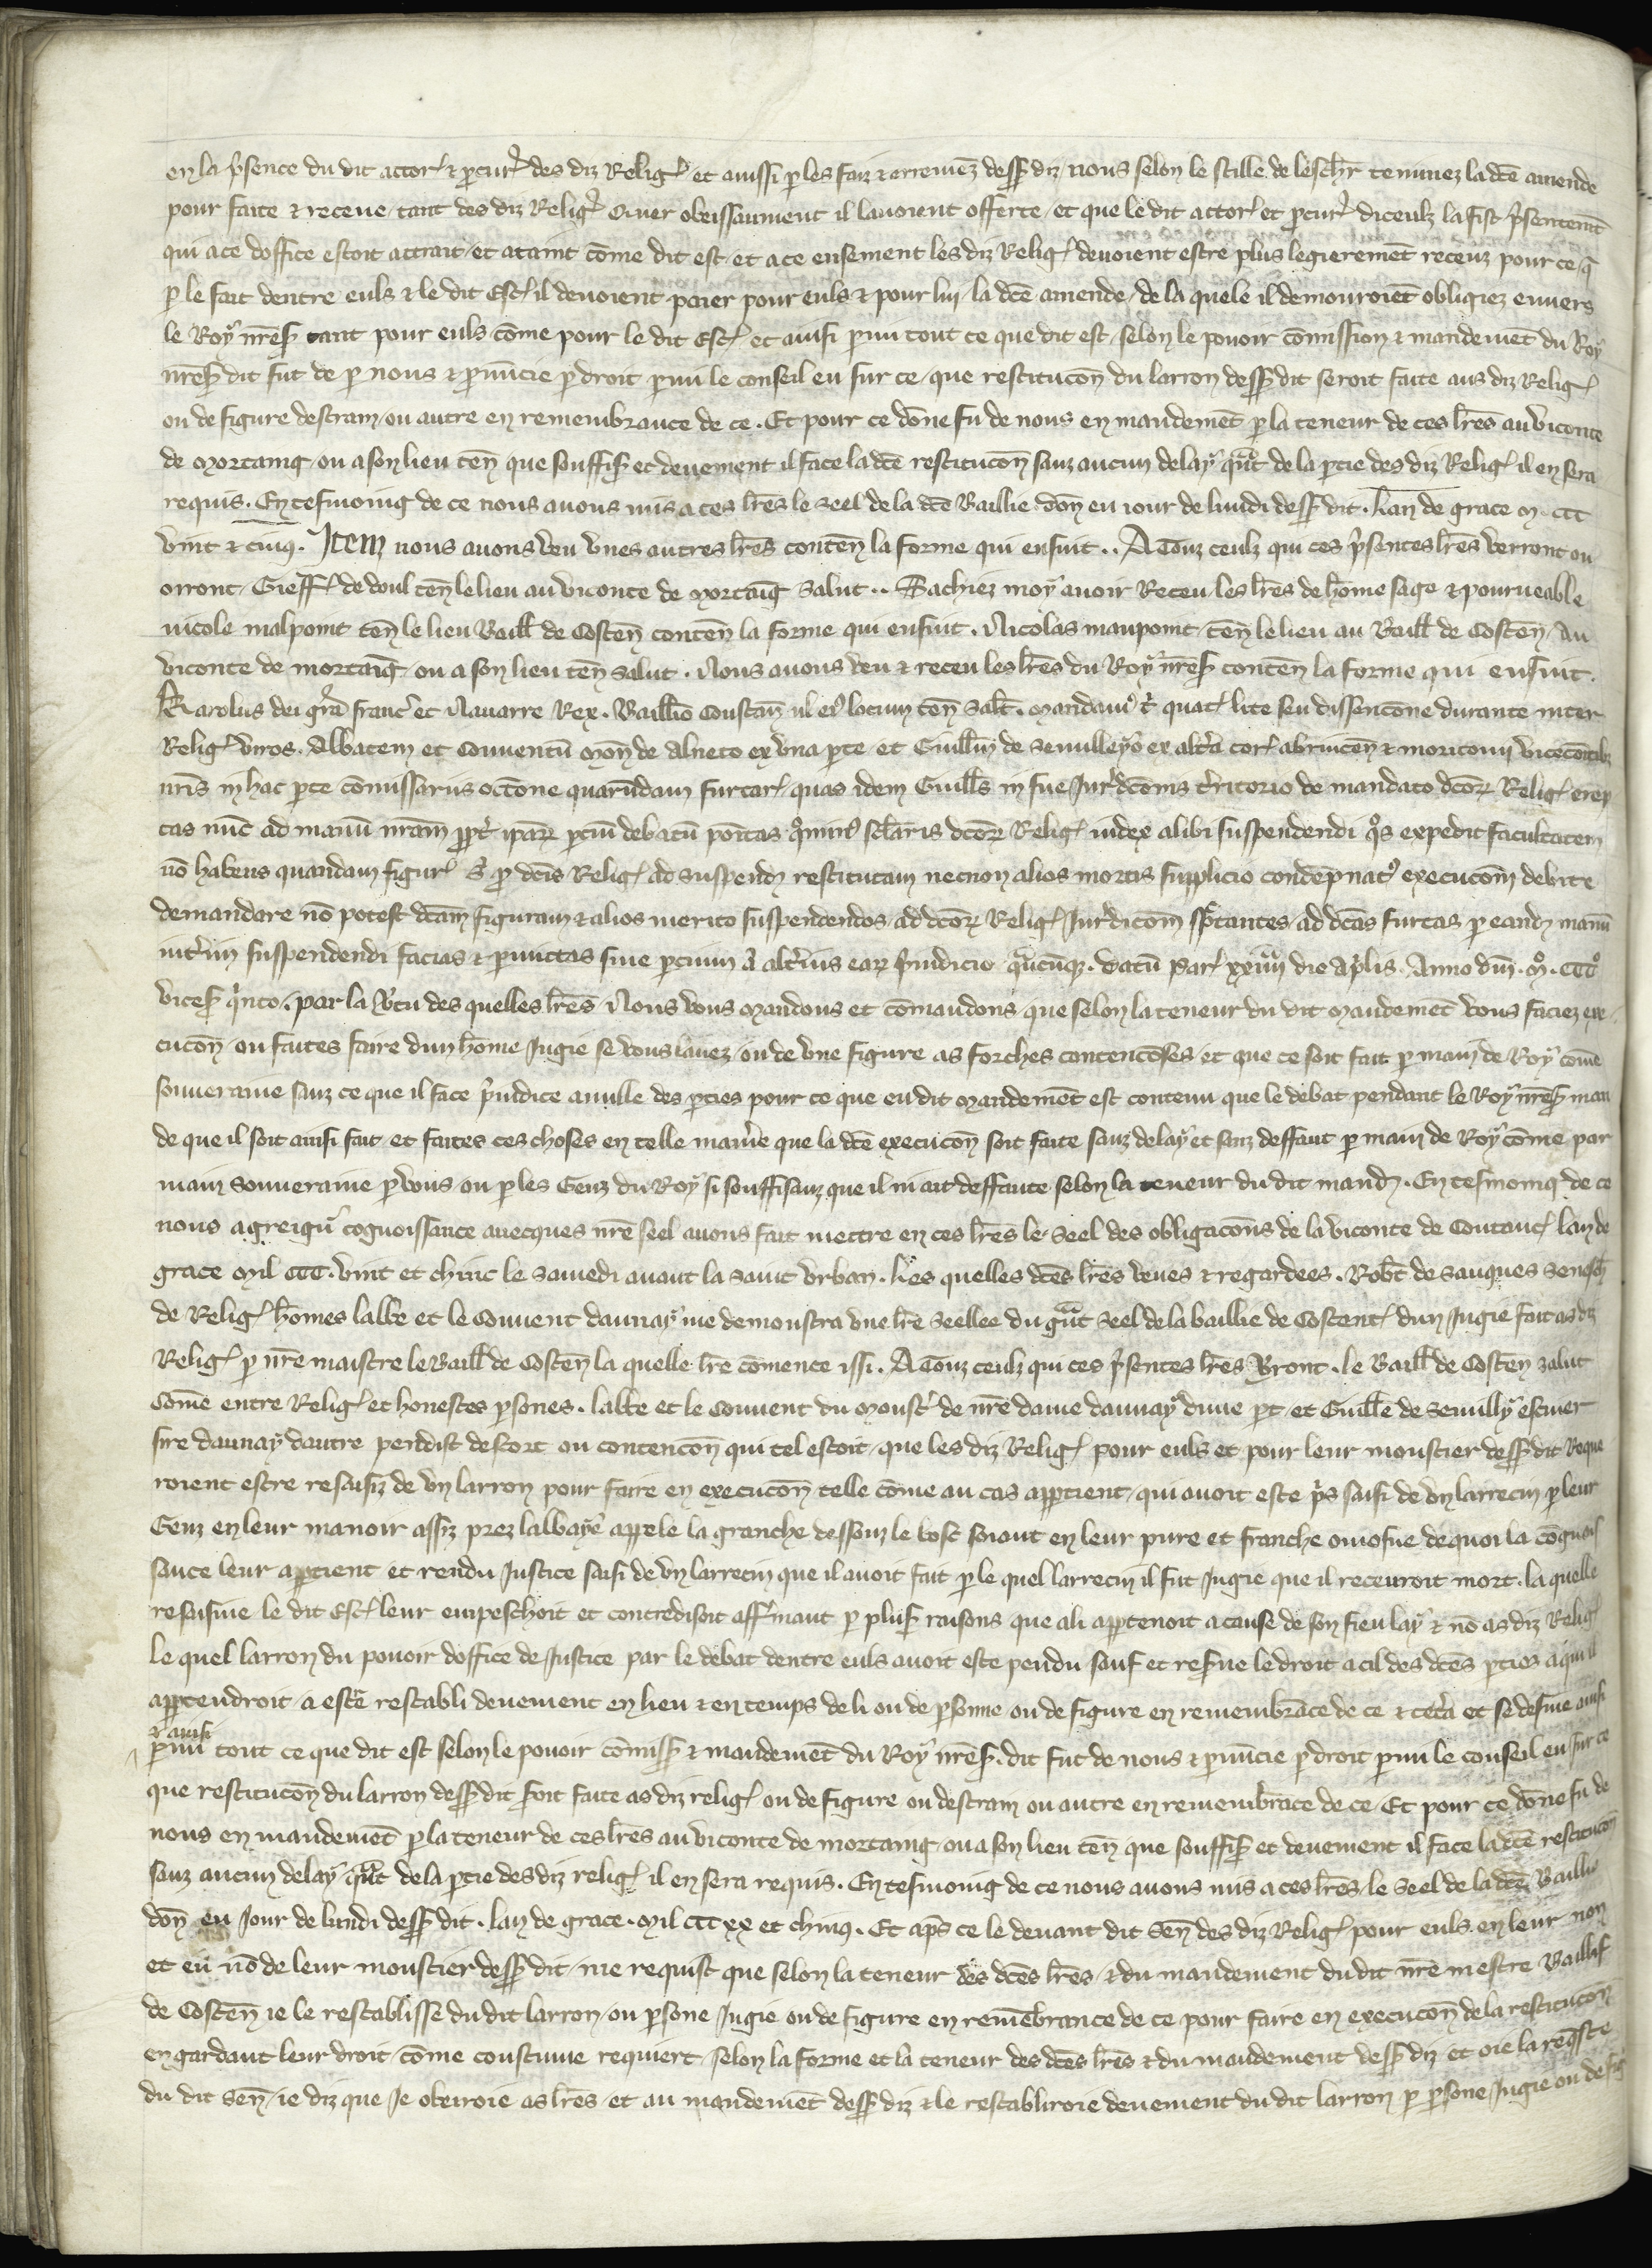 en la p̾sence du dit actor᷒ ⁊ ꝓcur᷒ des diz Relig᷒ et aussi ꝑ les faiz ⁊ erremēz dess᷒ diz nous selon le stille de leschr̄ tenimez la dc̄e amende
pour faite ⁊ receue tant des diz Relig᷒ q̾ mer obeissaument il lauoient offerte et que le dit actor᷒ et ꝓcur᷒ diceulz la fist p̾sentemēt
qui a ce doffice estoit attrait et ataint cōme dit est et a ce ensement les diz Relig᷒ deuoient estre plus legieremēt receuz pour ce q̄
ꝑ le fait dentre euls ⁊ le dit Esc᷒ il deuoient paier pour euls ⁊ pour lui la dc̄e amende de la quele il demouroiēt obligiez enuers
le Roy nr̄es᷒ tant pour euls cōme pour le dit Esc᷒ et ainsi ꝑmi tout ce que dit est selon le pouoir cōmission ⁊ mandemēt du Roy
nr̄es᷒ dit fut de ꝑ nous ⁊ ꝓnūcie ꝑ droit ꝑmi le conseil eu sur ce que restitucōn du larron dess᷒ dit seroit faite aus diz Relig᷒
ou de figure destram ou autre en remembrance de ce. Et pour ce dōne fu de nous en mandemēt ꝑ la teneur de ces lr̄es au viconte
de Mortaing ou a son lieu ten̄ que souffis᷒ et deuement il face la dc̄e restitucōn sanz aucun delay qn̄t de la ꝑtie des diz Relig᷒ il en sera
requis. En tesmoing de ce nous auons mis a ces lr̄es le seel de la dc̄e Baillie don̄ eu iour de lundi dess᷒ dit. Lan de grace M. CCC
vint ⁊ cinq. Item nous auons veu vnes autres lr̄es conten̄ la forme qui ensuit.. A Touz ceulz qui ces p̾sentes lr̄es verront ou
orront Gieff᷒ de doul ten̄ le lieu au viconte de Mortaīg salut.. Sachiez moy auoir Receu les lr̄es de hōme sage ⁊ pourueable
nicole malpoint ten̄ le lieu Baill̄ de Costen̄ conten̄ la forme qui ensuit. Nicolas maupoint ten̄ le lieu au Baill̄ de Costen̄ Au
viconte de mortaīg ou a son lieu ten̄ salut. Nous auons veu ⁊ receu les lr̄es du Roy nr̄es᷒ conten̄ la forme qui ensuit.
Karolus dei gr̄a franc᷒ et Nauarre Rex. Baill̄io Constan̄ ul̄ ei᷒ locum ten̄ Salt̄. Mandam᷒ t᷒ quat᷒ lite seu dissencōne durante inter
Relig᷒ viros. Abbatem et Conuentū Mon̄ de Alneto ex vna ꝑte et Guill̄m de Semulleyo ex alt̾a cor᷒ abrincen̄ ⁊ moritonij vicecōitib᷒
nr̄is in hac ꝑte cōmissariis occōne quarūdam furcar᷒ quas idem Guill̄s in sue Jur᷒dcōnis t̾ritorio de mandato dc̄orꝝ Relig᷒ erep
tas nūc ad manū nr̄am ꝓpt̾ ip̄arꝝ ꝑciū debatū po͞itas q̾min᷒ sc̄laris dc̄orꝝ Relig᷒ iudex alibi suspendendi q᷒s expedit facultatem
nō habens quandam figur᷒ ꝑ dc̄is Relig᷒ ad suspend᷒ restitutam necnon alios mortis supplicio condēpnat᷒ execucōni debite
demandare nō potest dc̄am figuram ⁊ alios merito suspendendos ad dc̄orꝝ Relig᷒ Jur᷒dicōm spc̄tantes ad dc̄as furcas ꝑ eand᷒ manū
int̾im suspendendi facias ⁊ ꝑmittas sine ꝑcium ul̄ alt̾ius earꝝ p̾iudicio q̾cūq᷒. Datū Par᷒ xxiiij die Ap̾lis. Anno dn̄i. M. CCC
vices᷒ q̾nto. Par la v̾tu des quelles lr̄es Nous vous Mandons et cōmandons que selon la teneur du dit Mandemēt vous faciez exe
cucōn ou faites faire dun hōme Jugie se vous lauez ou de vne figure as forches contencōses et que ce soit fait ꝑ main de Roy cōme
souueraine sanz ce que il face p̾iudice a nulle des ꝑties pour ce que eu dit Mandemēt est contenu que le debat pendant le Roy nr̄es᷒ man
de que il soit ainsi fait et faites ces choses en telle man̾ie que la dc̄e execucōn soit faite sanz delay et sanz deffaut ꝑ main de Roy cōme par
main Souueraine ꝑ vous ou ꝑ les Genz du Roy si souffisanz que il ni ait deffaute selon la teneur du dit mand᷒. En tesmoing de ce
nous a greign᷒ cognoissance auecques nr̄e seel auons fait mettre en ces lr̄es le Seel des obligacōns de la viconte de Coutanc᷒ lan de
grace Mil CCC. vint et chinc le Samedi auant la saint vrban. Les quelles dc̄es lr̄es veues ⁊ regardees. Robt̄ de Sauques senesc̄h
de Relig᷒ hōmes labbe et le Couuent daunay me demonstra vne lr̄e seellee du gr̄nt seel de la baillie de Costent᷒ dun Jugie fait as diz
Relig᷒ ꝑ nr̄e maistre le Baill̄ de Costen̄ la quelle lr̄e cōmence issi. A Touz ceulz qui ces p̾sentes lr̄es v̾ront. le Baill̄ de Costen̄ salut
Cōme entre Relig᷒ et honestes ꝑsones. labbe et le Couuent du Moust᷒ de nr̄e dame daunay dune ꝑt et Guill̄e de Semilly escuier
sire daunay dautre pendist descort ou contencōn qui tel estoit que les diz Relig᷒ pour euls et pour leur moustier dess᷒ dit Reque
roient estre resaisiz de vn larron pour faire en execucōn telle cōme au cas apꝑtient qui auoit este p̾s saisi de vn larrecin ꝑ leur
Genz en leur manoir assiz prez labbaye appele la granche dessouz le bosc soiant en leur pure et franche omosne de quoi la cōgnois
sance leur apꝑtient et rendu Justice saisi de vn larrecin que il auoit fait ꝑ le quel larrecin il fut Jugie que il receuroit mort. la quelle
resaisine le dit Esc᷒ leur empeschoit et contredisoit aff᷒mant ꝑ plus᷒ raisons que a li apꝑtenoit a cause de son fieu lay ⁊ nō as diz Relig᷒
le quel larron du pouoir doffice de Justice par le debat dentre euls auoit este pendu sauf et res᷒ue le droit a cil des dc̄es ꝑtiez a qui il
apꝑtendroit a estre restabli deuement en lieu ⁊ en temps de li ou de ꝑsonne ou de figure en remembrāce de ce ⁊ cet̾a et se desine ainsi
⁊ ainsi
ꝑmi tout ce que dit est selon le pouoir cōmiss᷒ ⁊ mandemēt du Roy nr̄es᷒. dit fut de nous ⁊ ꝓnūcie ꝑ droit ꝑmi le conseil eu sur ce
que restitucōn du larron dess᷒ dit s᷒oit faite as diz relig᷒ ou de figure ou destram ou autre en remembrāce de ce. Et pour ce dōne fu de
nous en mandemēt ꝑ la teneur de ces lr̄es au viconte de mortaing ou a son lieu ten̄ que souffis᷒ et deuement il face la dc̄e restitucōn
sanz aucun delay qn̄t de la ꝑtie des diz relig᷒ il en sera requis. En tesmoing de ce nous auons mis a ces lr̄es le seel de la dc̄e Baillie
don̄ eu Jour de lundi dess᷒ dit. lan de grace. Mil CCC xx et chinq. Et ap̄s ce le deuant dit Sen̄ des diz Relig᷒ pour euls en leur non
et eu nō de leur moustier dess᷒ dit me requist que selon la teneur des dc̄es lr̄es ⁊ du mandement du dit nr̄e mestre Baillif
de Costen̄ ie le restablisse du dit larron ou ꝑsone Jugie ou de figure en remēbrance de ce pour faire en execucōn de la restitucōn
en gardant leur droit cōme coustume requiert selon la forme et la teneur des dc̄es lr̄es ⁊ du mandement dess᷒ diz et oie la req̄ste
du dit Sen̄ ie diz que Je obeiroie as lr̄es et au mandemēt dess᷒ diz ⁊ le restabliroie deuement du dit larron ꝑ ꝑsone Jugie ou de fig᷒